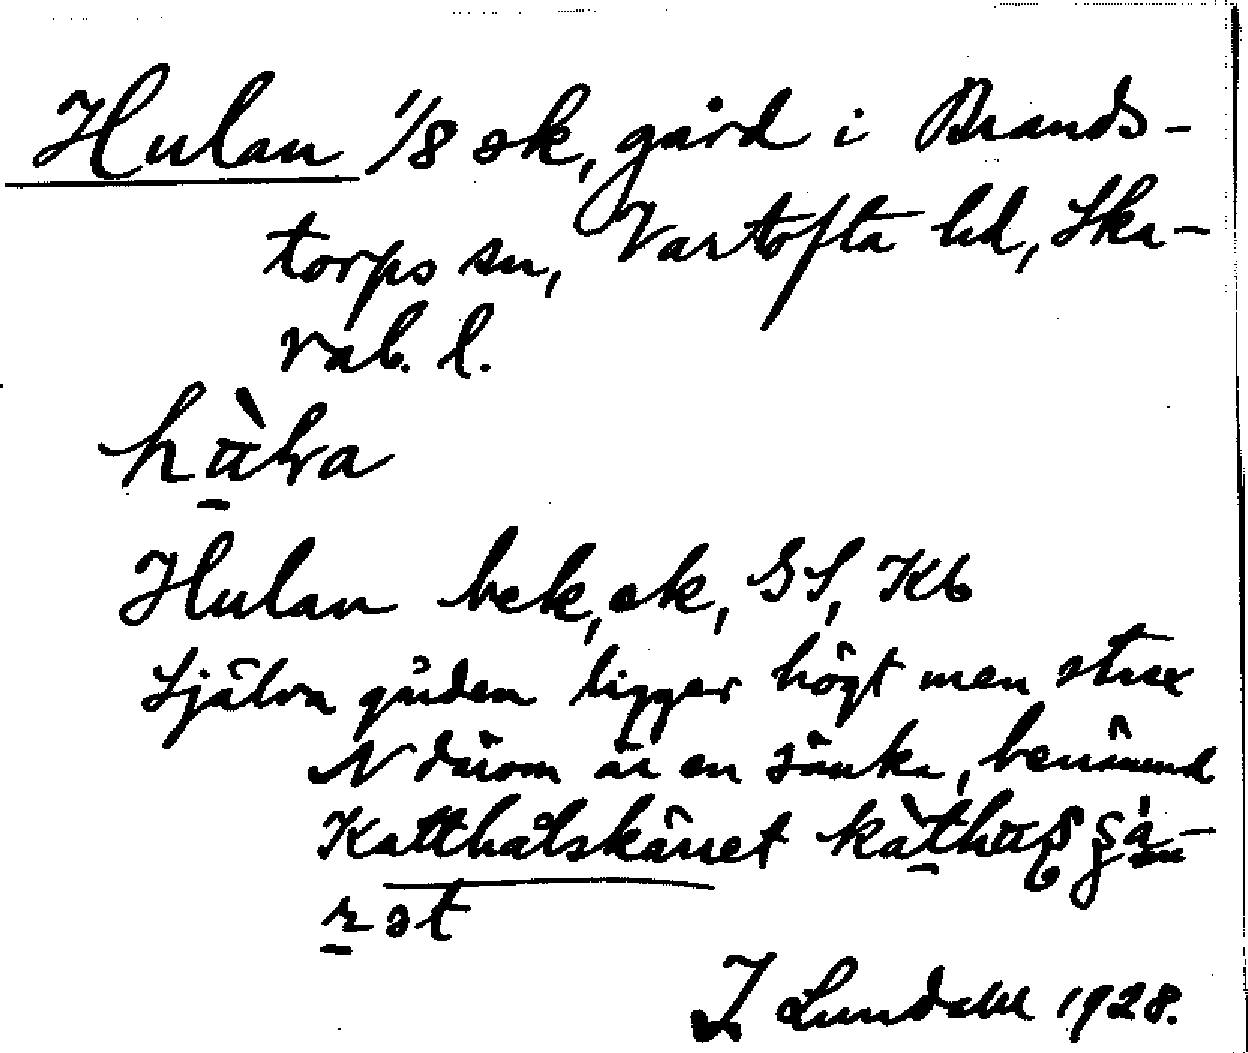 Hulan 1/8 sk, gård i Brands-
torps sn, Vartofta hd, Ska-
rab. l.
Hulan bek, ek, GS, Kb
Själva gården ligger högt men strax
N därom är en sänka, benämnd
Katthålskärret
I Lundahl 1928.